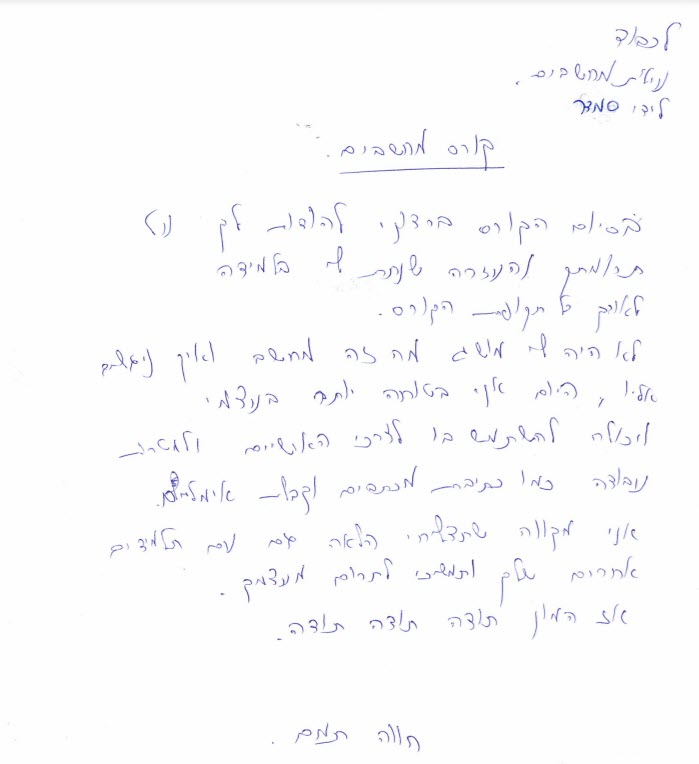 לכבוד
עמית מחשבים.
לידי סמדר
קורס מחשבים.
בסיום הקורס ברצוני להודות לך על
תרומתך והעזרה שנתת לי בלמידה
לאורך כל תקופת הקורס.
לא היה לי מושג מה זה מחשב ואיך ניגשים
אליו, היום אני בטוחה יותר בעצמי
ויכולה להשתמש בו לצרכי האישיים ולמטרות
עבודה כמו כתיבת מכתבים וקבלת אימלים.
אני מקווה שתצליחי הלאה גם עם תלמידים
אחרים שלך ותמשיכי לתרום מעצמך.
אז המון תודה תודה תודה.
חווה תמם.